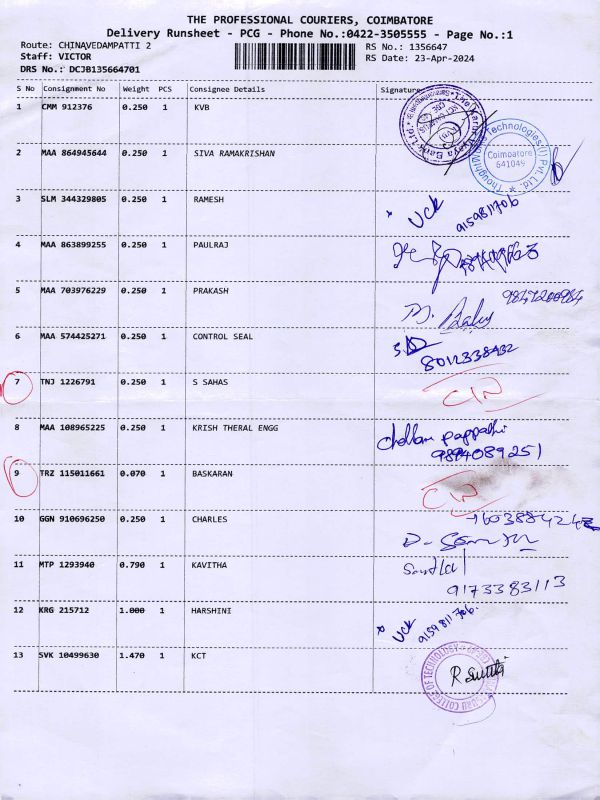 THE PROFESSIONAL COURIERS, COIMBATORE
Delivery Runsheet - PCG - Phone No.:0422-3505555 - Page No.:1
Route: CHINAVEDAMPATTI 2 RS No.: 1356647
Staff: VICTOR RS Date: 23-Apr-2024
DRS No.: DCJB135664701
S No Consignment No Weight PCS Consignee Details Signature
1 CMM 912376 0.250 1 KVB
2 MAA 864945644 0.250 1 SIVA RAMAKRISHAN
Technologies
Coimbatore
641049
Pvt. Ltd.
3 SLM 344329805 0.250 1 RAMESH
UCK 9159811706
4 MAA 863899255 0.250 1 PAULRAJ
5 MAA 703976229 0.250 1 PRAKASH
6 MAA 574425271 0.250 1 CONTROL SEAL
8012338432
7 TNJ 1226791 0.250 1 S SAHAS
8 MAA 108965225 0.250 1 KRISH THERAL ENGG
pappathi
9894089251
9 TRZ 115011661 0.070 1 BASKARAN
10 GGN 910696250 0.250 1 CHARLES
11 MTP 1293940 0.790 1 KAVITHA
9173383113
12 KRG 215712 1.000 1 HARSHINI
UCK 9159811706.
13 SVK 10499630 1.470 1 KCT
COLLEGE OF TECHNOLOGY